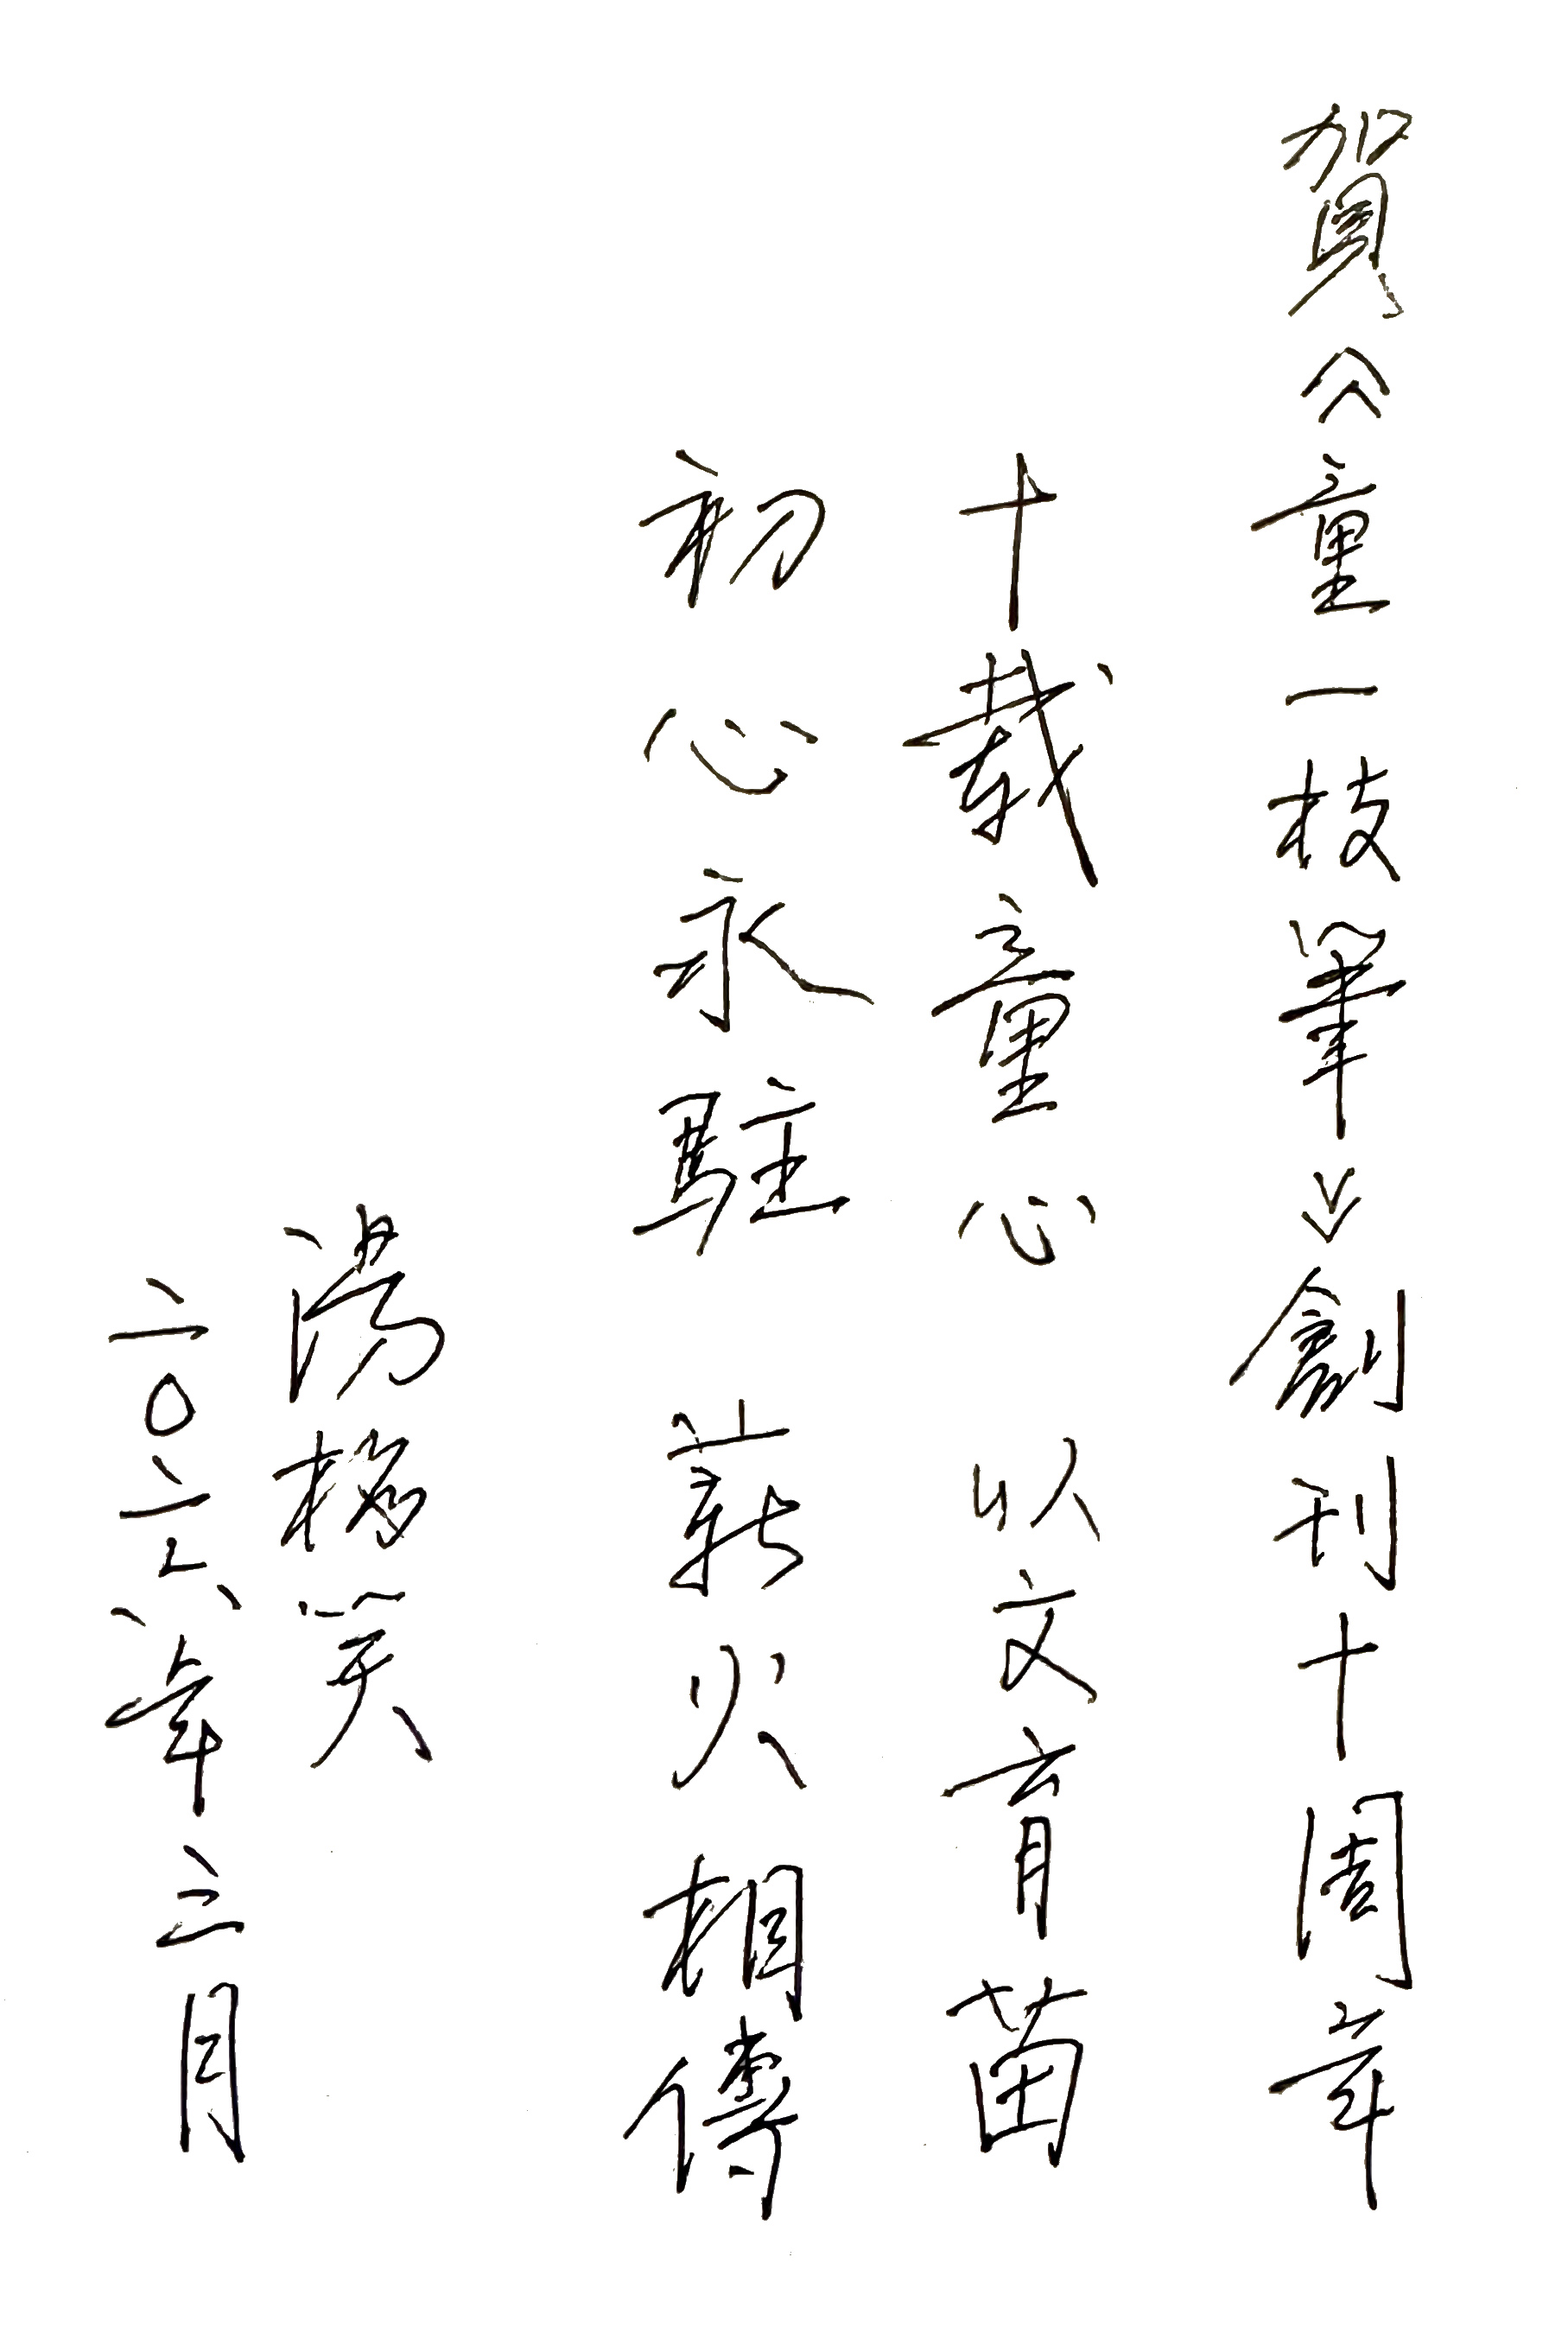 賀《童一枝筆》創刊十周年
十載童心 以文育苗
初心永駐 薪火相傳
湯梅笑
二〇二六年三月